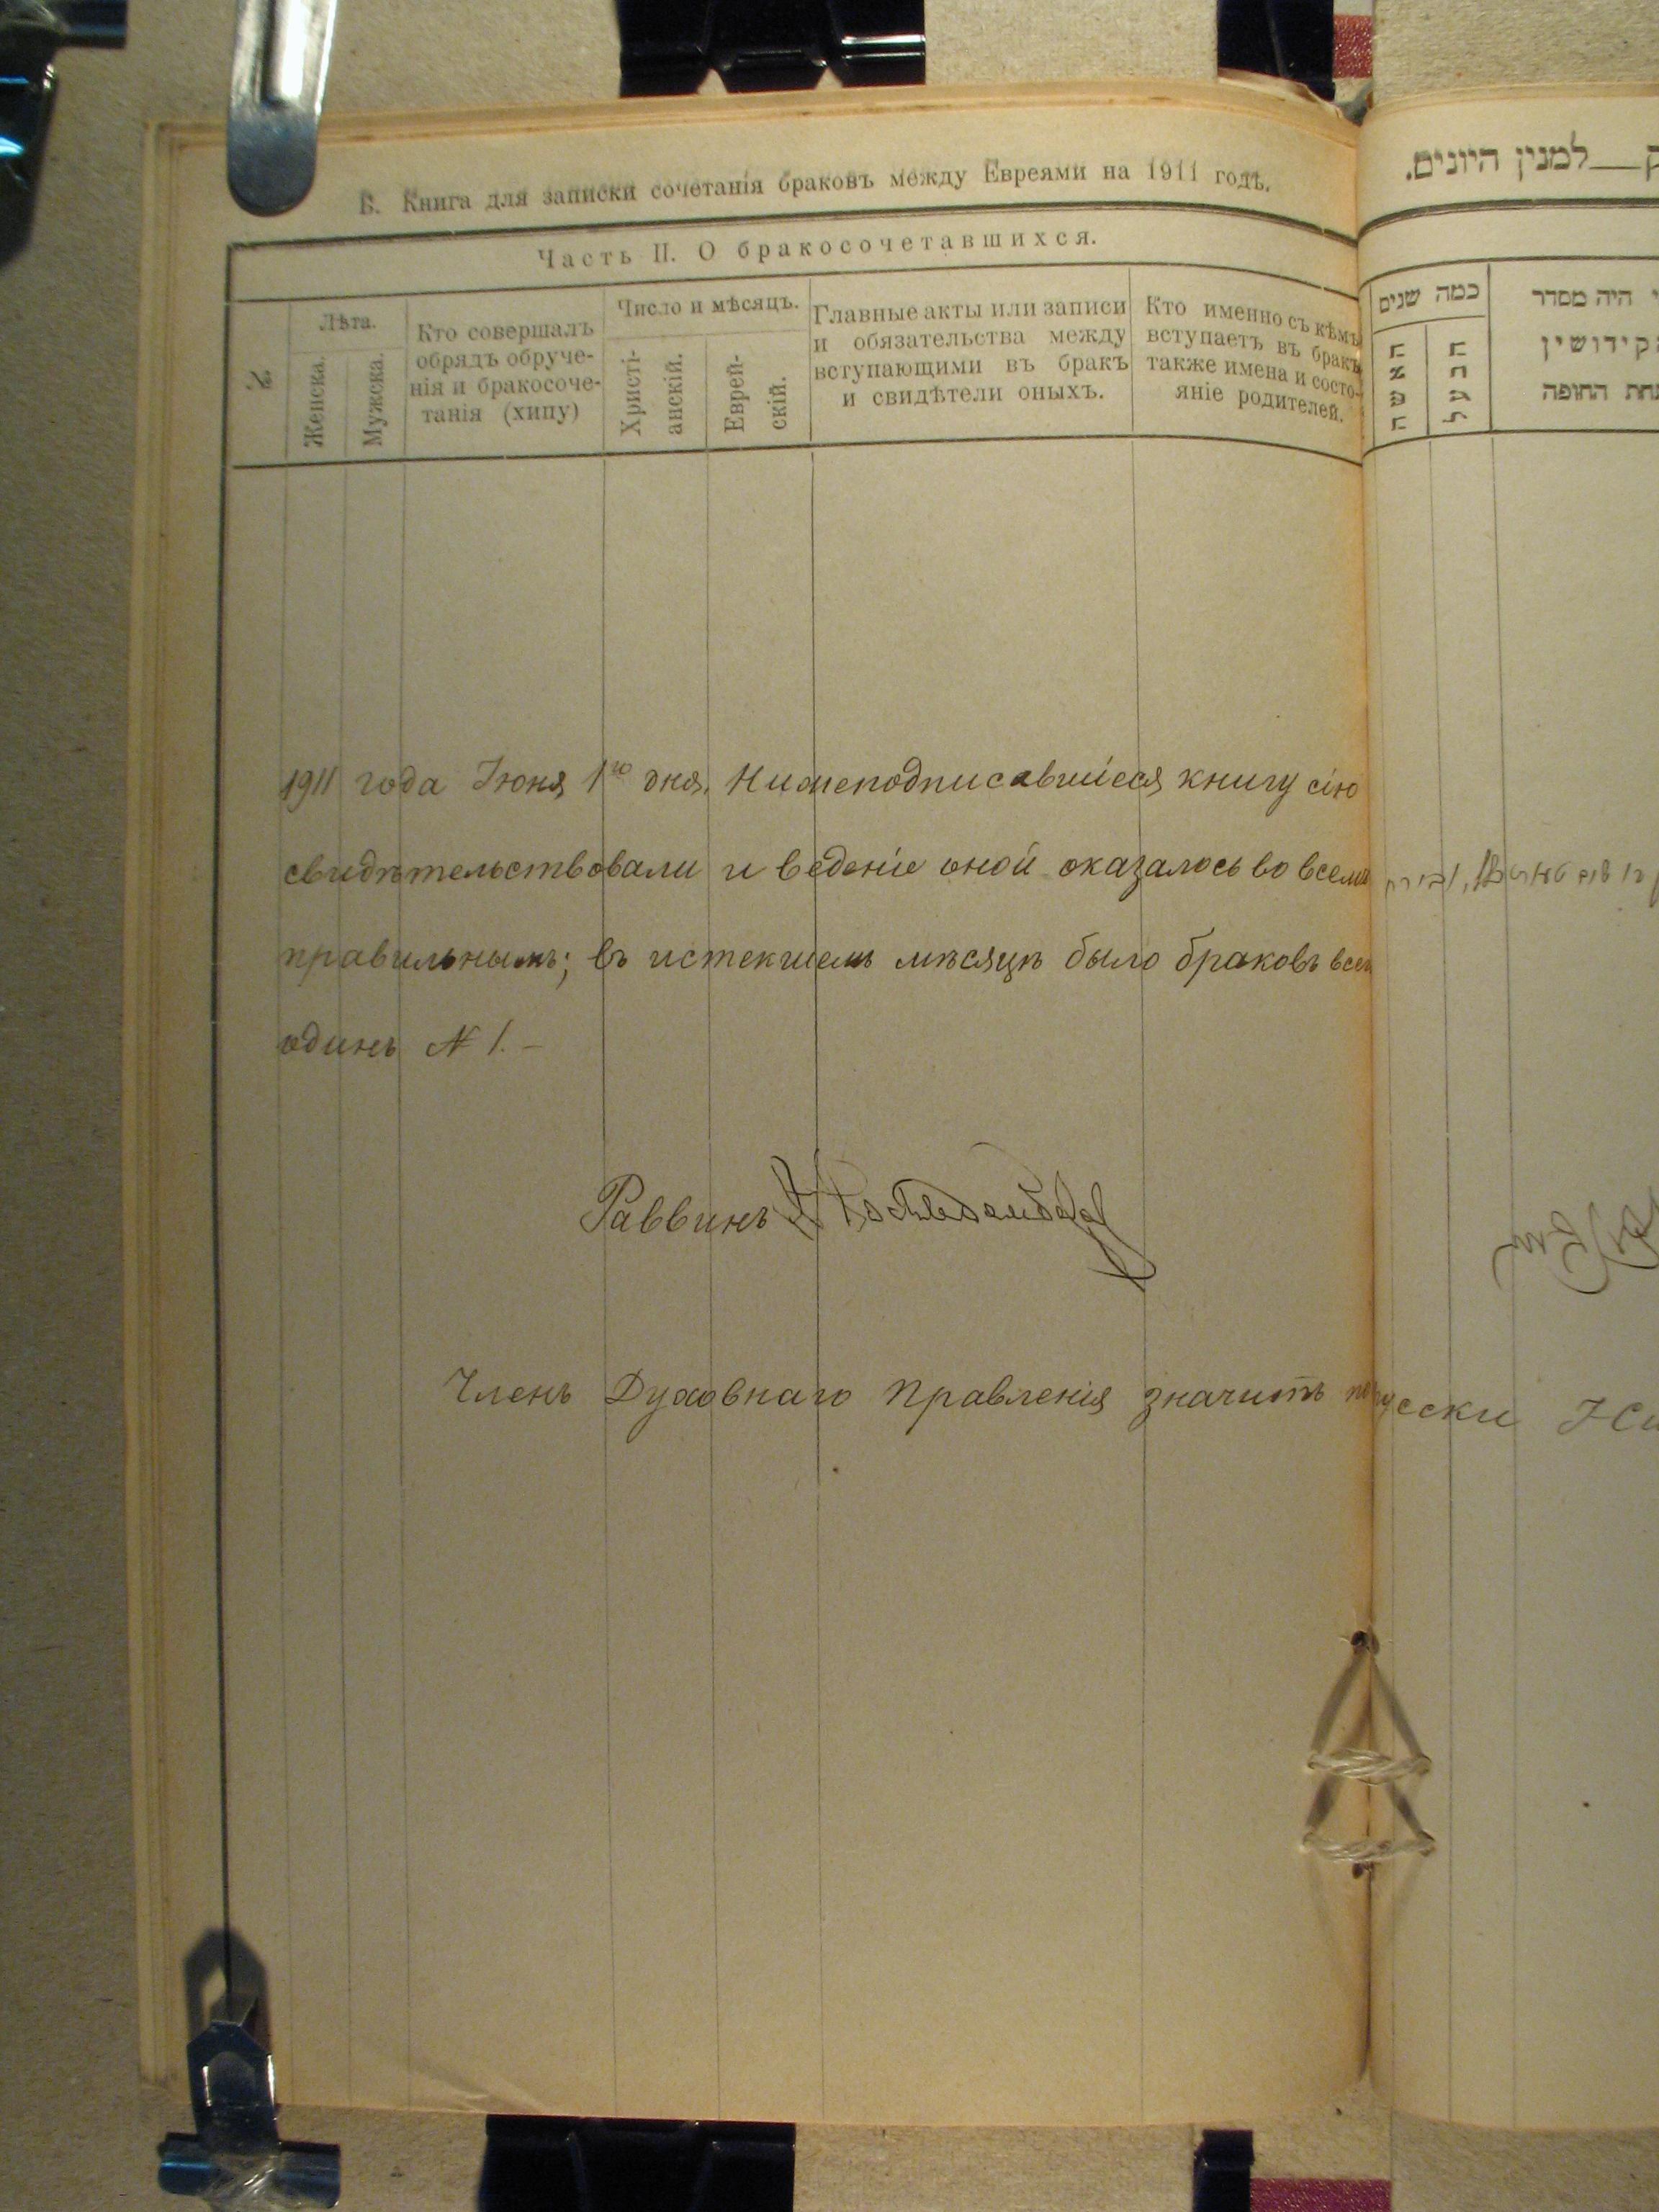 Б. Книга для записки сочетанія браковъ между Евреями на 1911 годъ.
Часть II. О бракосочетавшихся.
№
Лѣта.
Женска.
Мужска.
Кто совершалъ
обрядъ обруче-
нія и бракосоче-
танія (хипу)
Число и мѣсяцъ.
Христі-
анскій.
Еврей-
скій.
Главные акты или записи
и обязательства между
вступающими въ бракъ
и свидѣтели оныхъ.
Кто именно съ кѣмъ
вступаетъ въ бракъ
также имена и состо-
яніе родителей.
1911 года Іюня 1го дня, Нижеподписавшіеся книгу сію
свидѣтельствовали и веденіе оной оказалось во всемъ
правильнымъ; въ истекшемъ мѣсяцѣ было браковъ всего
одинъ № 1. –
Раввинъ
Членъ Духовнаго Правленія значитъ порусски
למנין היונים.
כמה שנים
האשה
הבעל
היה מסדר
קידושין
תחת החופה